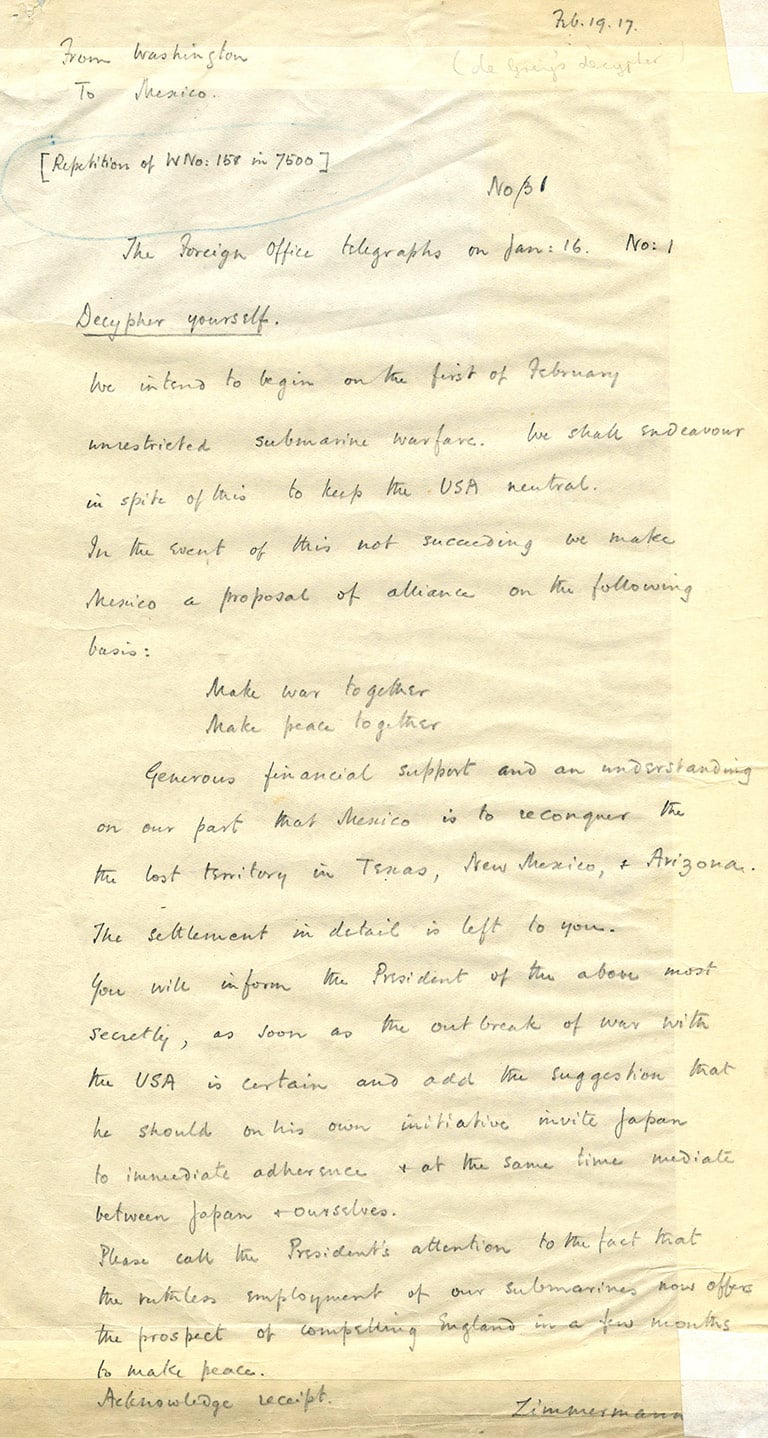 Feb. 19. 17.
From Washington
(de Grey's decypher)
To Mexico.
[Repetition of W No: 158 in 7500]
No/3
The Foreign Office telegraphs on Jan: 16. No: 1
Decypher yourself.
We intend to begin on the first of February
unrestricted submarine warfare. We shall endeavour
in spite of this to keep the USA neutral.
In the event of this not succeeding we make
Mexico a proposal of alliance on the following
basis:
Make war together
Make peace together
Generous financial support and an understanding
on our part that Mexico is to reconquer the
the lost territory in Texas, New Mexico, + Arizona.
The settlement in detail is left to you.
You will inform the President of the above most
secretly, as soon as the outbreak of war with
the USA is certain and add the suggestion that
he should on his own initiative invite Japan
to immediate adherence + at the same time mediate
between Japan + ourselves.
Please call the President's attention to the fact that
the ruthless employment of our submarines now offers
the prospect of compelling England in a few months
to make peace.
Acknowledge receipt.
Zimmermann